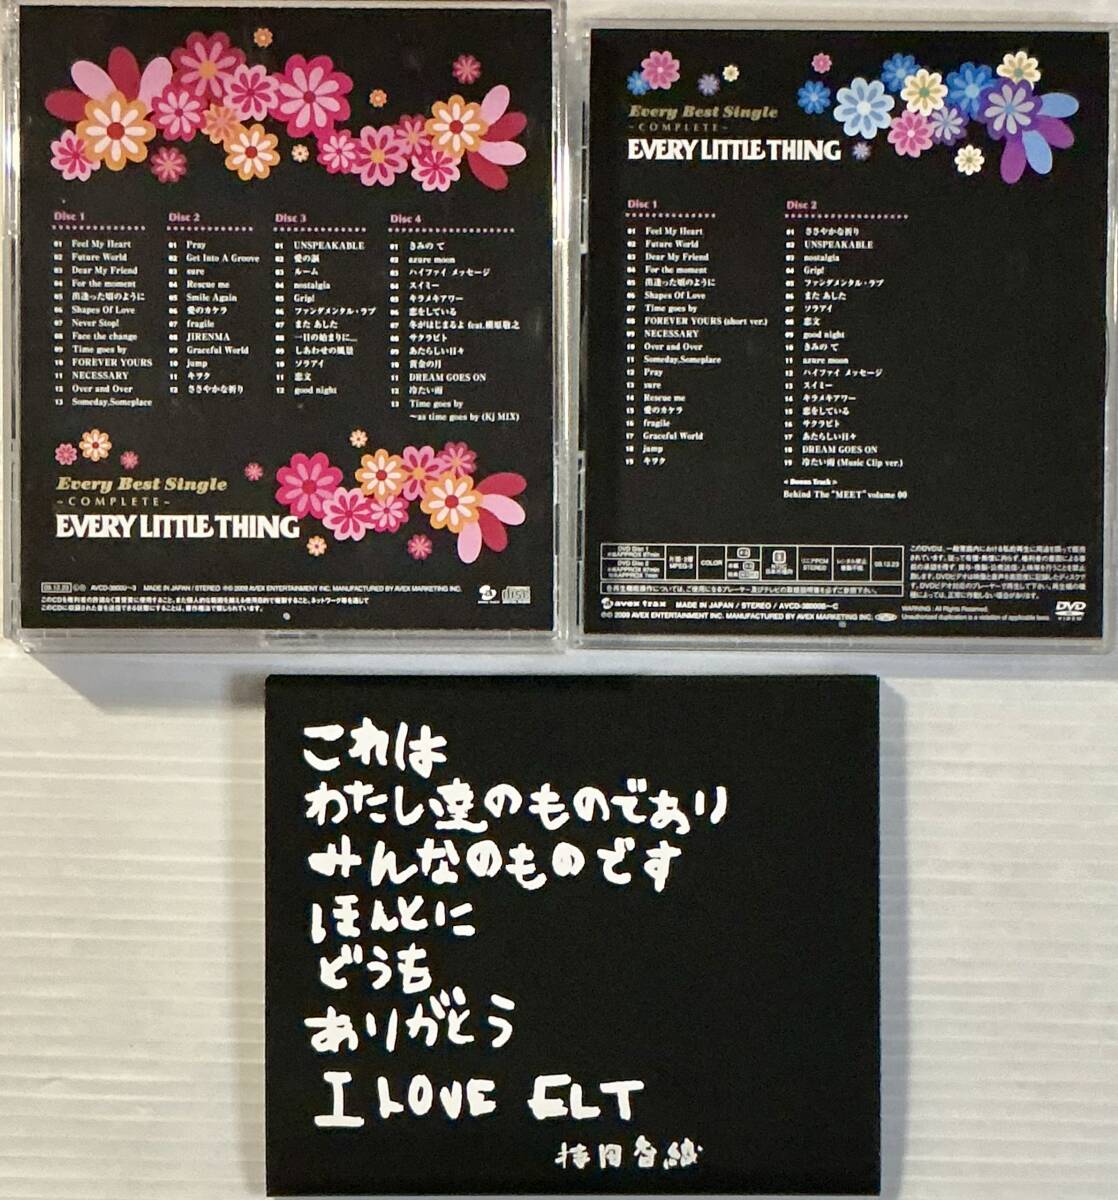 Disc 1
01 Feel My Heart
02 Future World
03 Dear My Friend
04 For the moment
05 出逢った頃のように
06 Shapes Of Love
07 Never Stop!
08 Face the change
09 Time goes by
10 FOREVER YOURS
11 NECESSARY
12 Over and Over
13 Someday,Someplace
Disc 2
01 Pray
02 Get Into A Groove
03 sure
04 Rescue me
05 Smile Again
06 愛のカケラ
07 fragile
08 JIRENMA
09 Graceful World
10 jump
11 キヲク
12 ささやかな祈り
Disc 3
01 UNSPEAKABLE
02 愛の謳
03 ルーム
04 nostalgia
05 Grip!
06 ファンダメンタル・ラブ
07 また あした
08 一日の始まりに...
09 しあわせの風景
10 ソラアイ
11 恋文
12 good night
Disc 4
01 きみの て
02 azure moon
03 ハイファイ メッセージ
04 スイミー
05 キラメキアワー
06 恋をしている
07 冬がはじまるよ feat.槇原敬之
08 サクラビト
09 あたらしい日々
10 黄金の月
11 DREAM GOES ON
12 冷たい雨
13 Time goes by
～as time goes by (Kj MIX)
Every Best Single
~COMPLETE~
EVERY LITTLE THING
MADE IN JAPAN / STEREO
Every Best Single
~COMPLETE~
EVERY LITTLE THING
Disc 1
01 Feel My Heart
02 Future World
03 Dear My Friend
04 For the moment
05 出逢った頃のように
06 Shapes Of Love
07 Time goes by
08 FOREVER YOURS (short ver.)
09 NECESSARY
10 Over and Over
11 Someday,Someplace
12 Pray
13 sure
14 Rescue me
15 愛のカケラ
16 fragile
17 Graceful World
18 jump
19 キヲク
Disc 2
01 ささやかな祈り
02 UNSPEAKABLE
03 nostalgia
04 Grip!
05 ファンダメンタル・ラブ
06 また あした
07 ソラアイ
08 恋文
09 good night
10 きみの て
11 azure moon
12 ハイファイ メッセージ
13 スイミー
14 キラメキアワー
15 恋をしている
16 サクラビト
17 あたらしい日々
18 DREAM GOES ON
19 冷たい雨 (Music Clip ver.)
< Bonus Track >
Behind The "MEET" volume 00
COLOR
09.12.23
avex trax MADE IN JAPAN / STEREO / AVCD-38000B~C
© 2009 AVEX ENTERTAINMENT INC. MANUFACTURED BY AVEX MARKETING INC.
WARNING : All Rights Reserved.
Unauthorized duplication is a violation of applicable laws.
DVD
VIDEO
これは
わたし達のものであり
みんなのものです
ほんとに
どうも
ありがとう
I LOVE ELT
持田香織